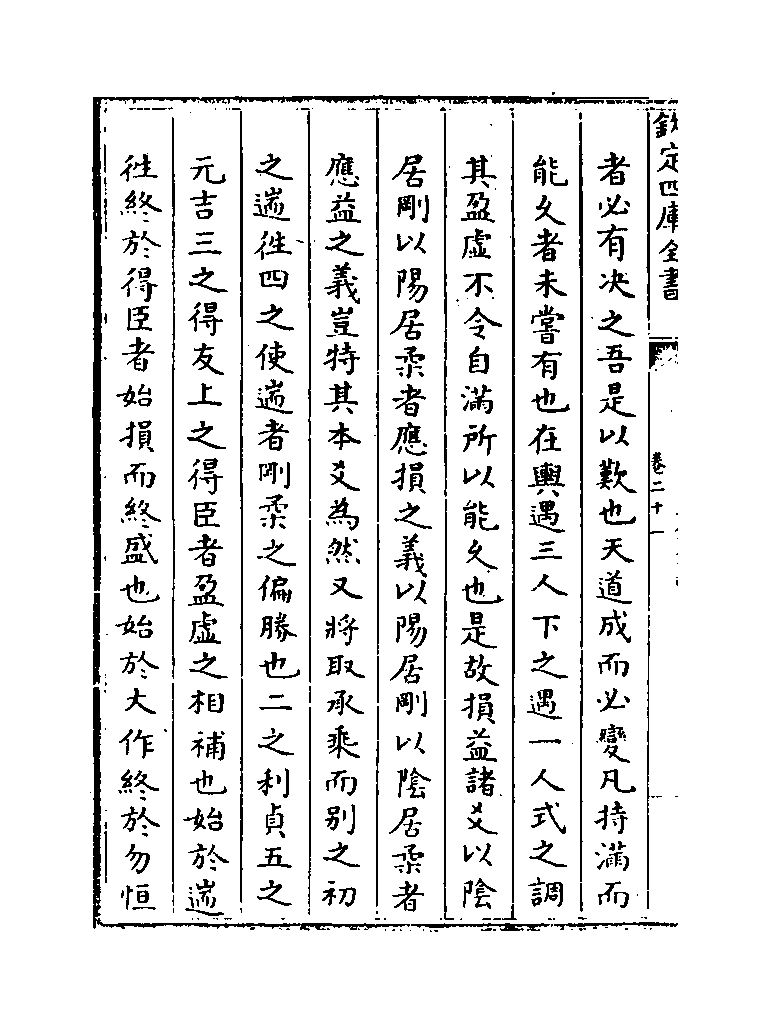 欽定四庫全書
卷二十一
者必有决之吾是以歎也天道成而必變凡持滿而
能久者未嘗有也在輿遇三人下之遇一人式之調
其盈虛不令自滿所以能久也是故損益諸爻以陰
居剛以陽居柔者應損之義以陽居剛以陰居柔者
應益之義豈特其本爻為然又將取承乘而别之初
之遄徃四之使遄者剛柔之偏勝也二之利貞五之
元吉三之得友上之得臣者盈虛之相補也始於遄
徃終於得臣者始損而終盛也始於大作終於勿恒